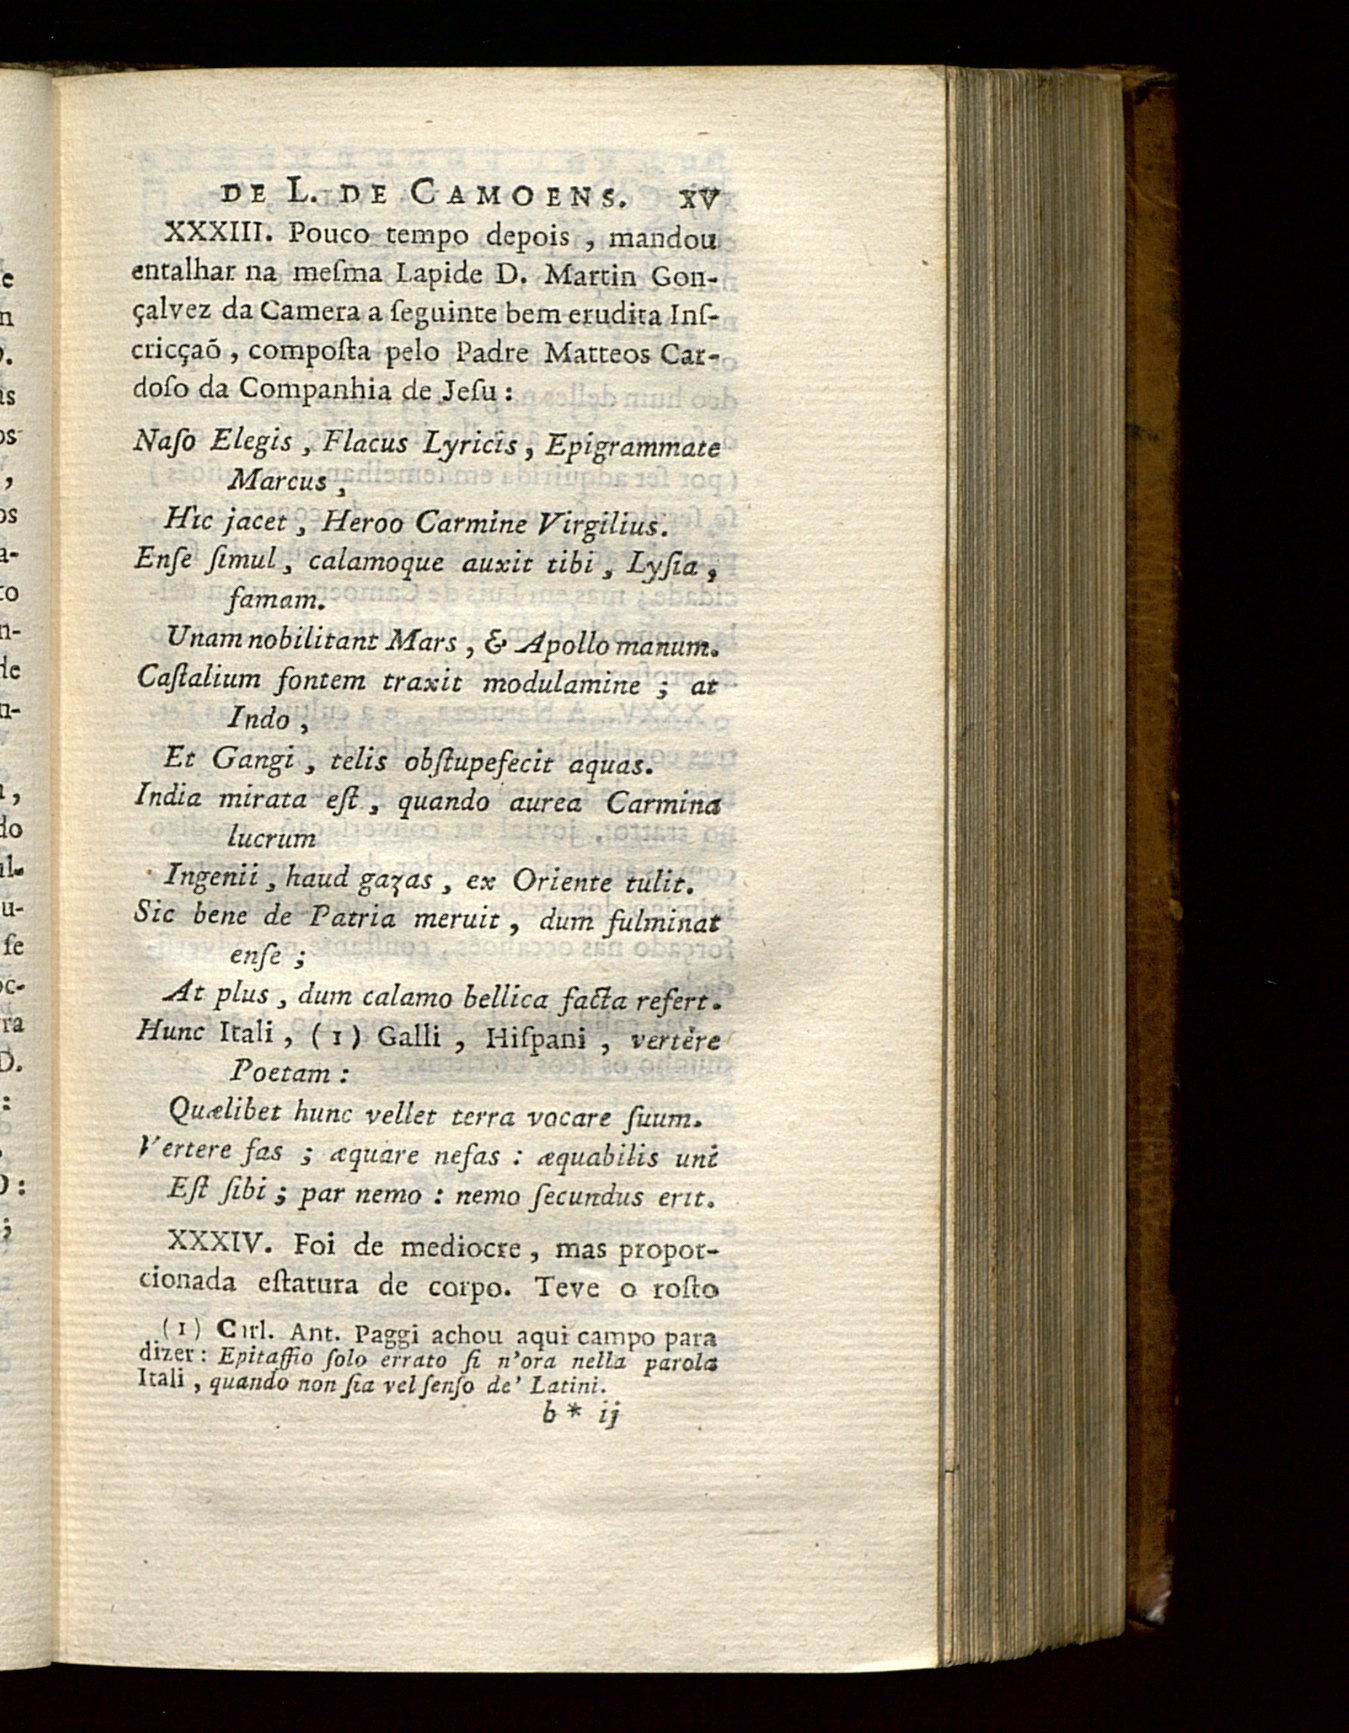 DE L. DE CAMOENS. XV
XXXIII. Pouco tempo depois , mandou
entalhar na meſma Lapide D. Martin Gon-
çalvez da Camera a ſeguinte bem erudita Inſ-
cricçaõ , compoſta pelo Padre Matteos Car-
doſo da Companhia de Jeſu :
Naſo Elegis , Flacus Lyricis , Epigrammate
Marcus ,
Hic jacet , Heroo Carmine Virgilius.
Enſe ſimul , calamoque auxit tibi , Lyſia ,
famam.
Unam nobilitant Mars , & Apollo manum.
Caſtalium fontem traxit modulamine ; at
Indo ,
Et Gangi , telis obſtupefecit aquas.
India mirata eſt , quando aurea Carmina
lucrum
Ingenii , haud gazas , ex Oriente tulit.
Sic bene de Patria meruit , dum fulminat
enſe ;
At plus , dum calamo bellica facta refert.
Hunc Itali , (1) Galli , Hiſpani , vertêre
Poetam :
Quælibet hunc vellet terra vocare ſuum.
Vertere fas ; æquare nefas : æquabilis uni
Eſt ſibi ; par nemo : nemo ſecundus erit.
XXXIV. Foi de mediocre , mas propor-
cionada eſtatura de corpo. Teve o roſto
(1) Carl. Ant. Paggi achou aqui campo para
dizer : Epitaffio ſolo errato ſi n'ora nella parola
Itali , quando non ſia vel ſenſo de' Latini.
b * ij